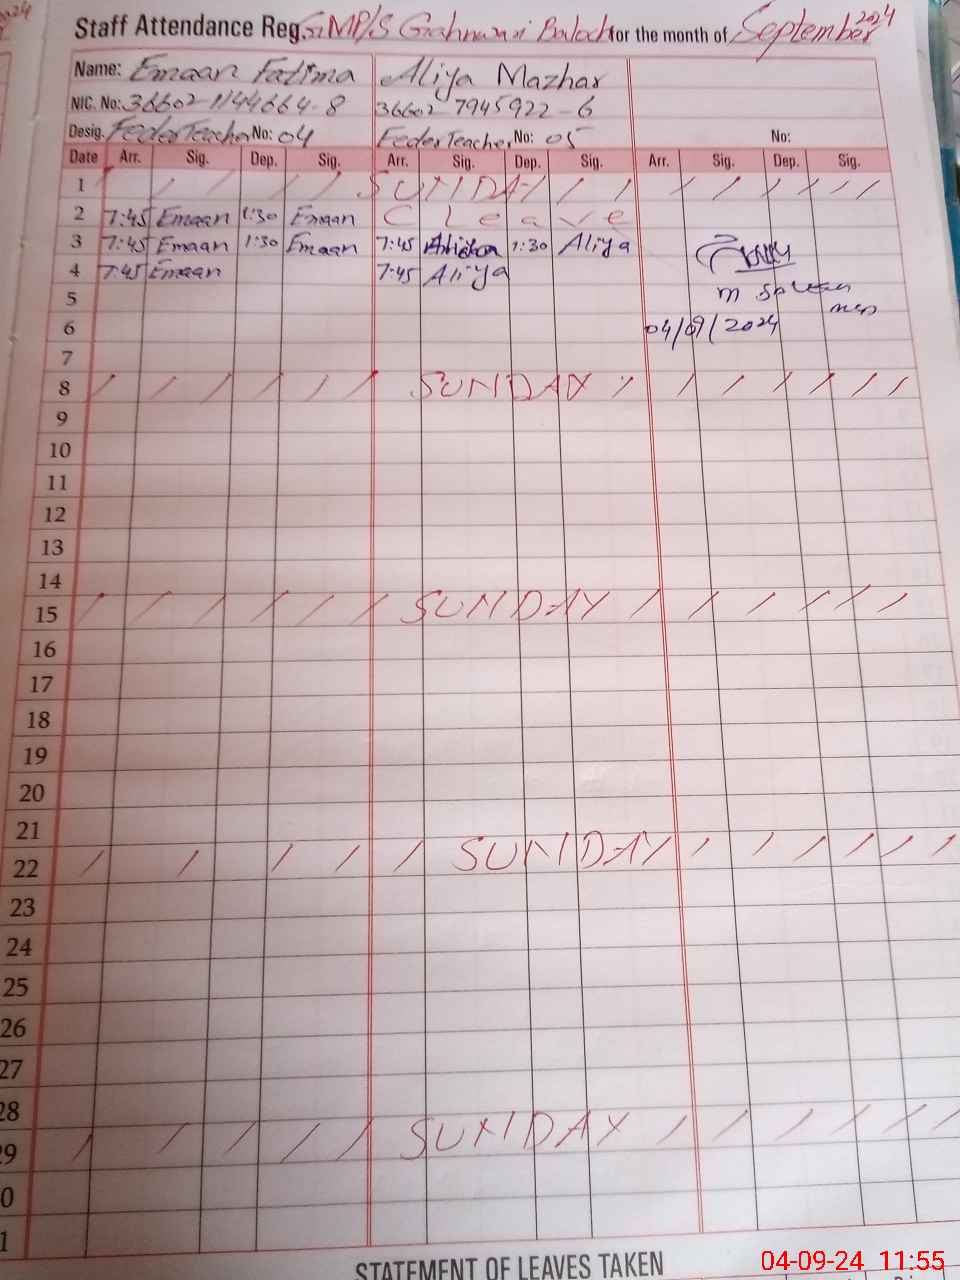 Staff Attendance Reg. GMP/S Grahnwani Baloch for the month of September 2024
Name: Emaan Fatima Aliya Mazhar
NIC. No: 36602-1144664-8 36602-7945922-6
Desig. Feder Teacher No: 04 Feder Teacher No: 05 No:
Date Arr. Sig. Dep. Sig. Arr. Sig. Dep. Sig. Arr. Sig. Dep. Sig.
1 SUNDAY
2 7:45 Emaan 1:30 Emaan C leave
3 7:45 Emaan 1:30 Emaan 7:45 1:30 Aliya
4 7:45 Emaan 7:45 Aliya
5
6 04/09/2024
7
8 SUNDAY
9
10
11
12
13
14
15 SUNDAY
16
17
18
19
20
21
22 SUNDAY
23
24
25
26
27
28
29 SUNDAY
0
1
STATEMENT OF LEAVES TAKEN
04-09-24 11:55